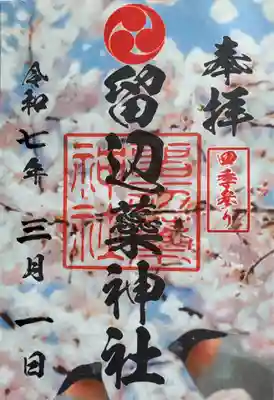 奉拝
四季祭り
留辺蘂神社
留辺蘂神社
令和七年 三月 一日